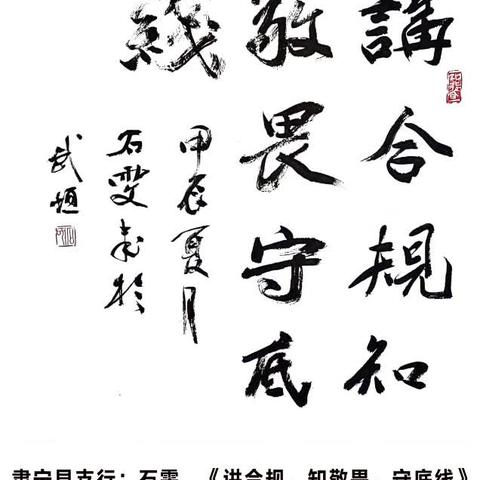 講合規知
敬畏守底
綫
甲辰夏月
石雯书於
武垣
肃宁县支行：石雯 《讲合规、知敬畏、守底线》